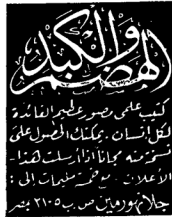 الهضم والكبد
كتيب علمى مصور عظيم الفائدة
لكل إنسان . يمكنك الحصول على
نسخة منه مجاناً إذا أرسلت هذا
الأعلان . مع خمسة مليمات إلى :
جلاجو رمين ص.ب ٢١٠٥ مصر